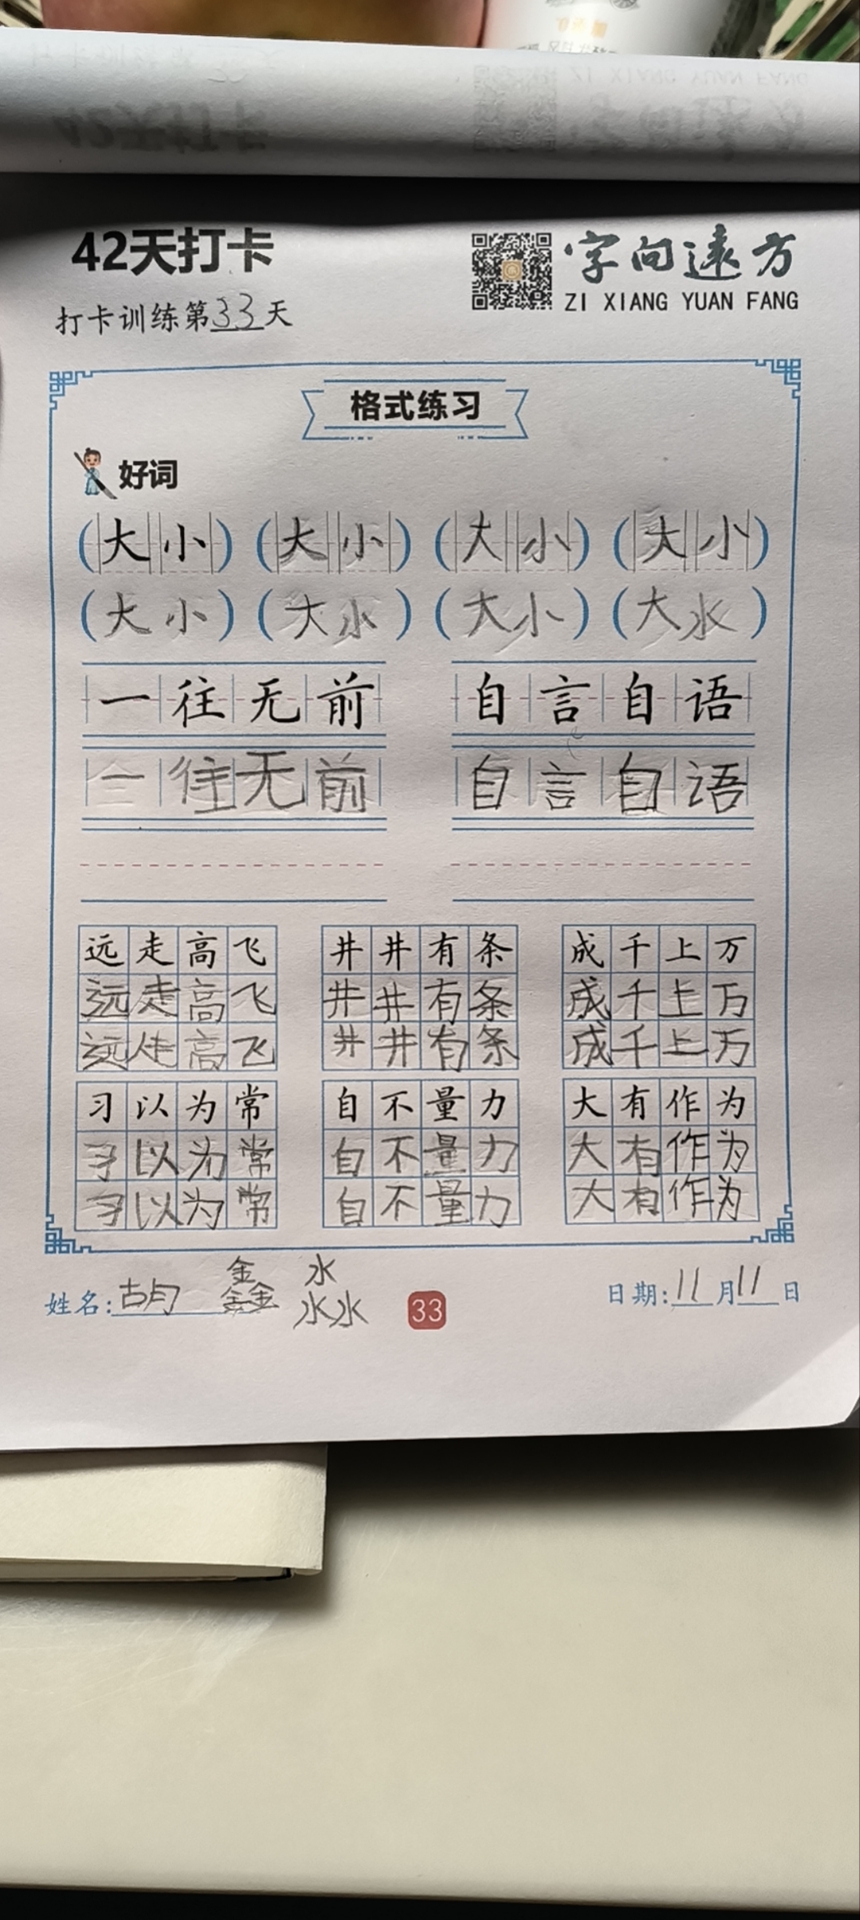 42天打卡
字向远方
ZI XIANG YUAN FANG
打卡训练第33天
格式练习
好词
(大小) (大小) (大小) (大小)
(大小) (大水) (大小) (大水)
一往无前 自言自语
一往无前 自言自语
远走高飞 井井有条 成千上万
远走高飞 井井有条 成千上万
远走高飞 井井有条 成千上万
习以为常 自不量力 大有作为
习以为常 自不量力 大有作为
习以为常 自不量力 大有作为
姓名:胡鑫淼 33 日期:11月11日